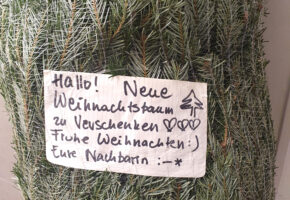 Hallo! Neue
Weihnachtsbaum
zu Verschenken ♡♡♡
Frohe Weihnachten :)
Eure Nachbarin :-*